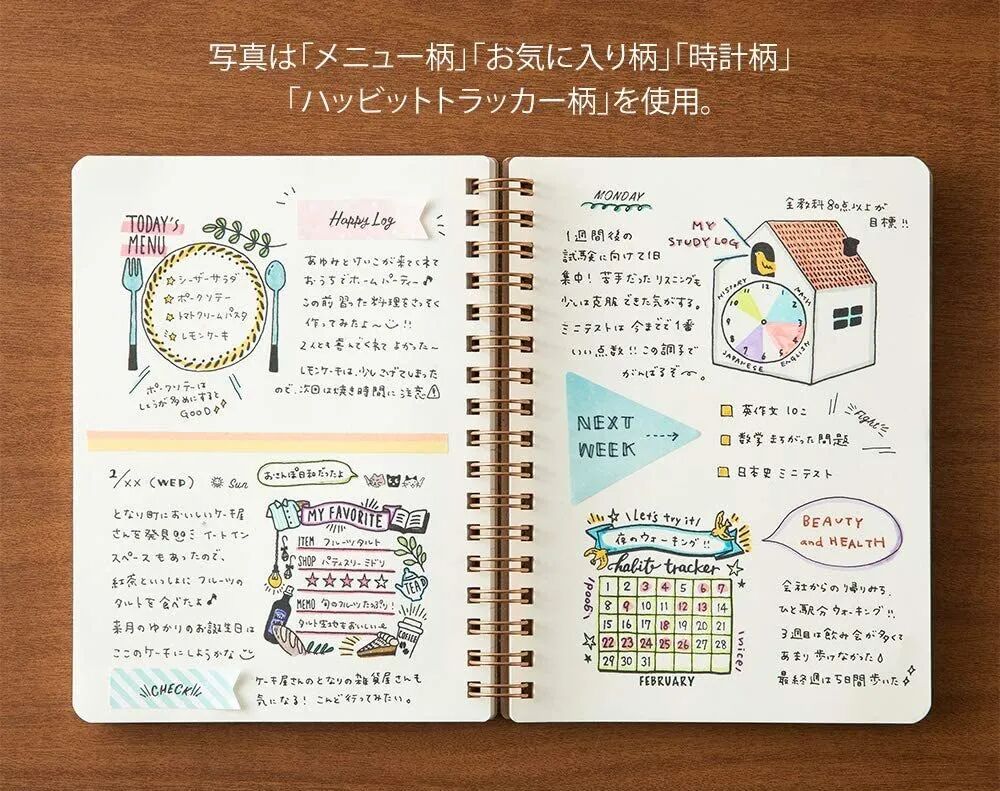 写真は「メニュー柄」「お気に入り柄」「時計柄」
「ハッビットトラッカー柄」を使用。
TODAY'S
MENU
シーザーサラダ
ポークソテー
トマトクリームパスタ
レモンケーキ
ポークソテーは
しょうが多めにすると
GOOD
Happy Log
あゆみとけいこが来てくれて
おうちでホームパーティー♪
この前習った料理をさっそく
作ってみたよ〜!!
2人とも喜んでくれてよかった〜
レモンケーキは、少しこげてしまった
ので、次回は焼き時間に注意
2/XX (WED) Sun
おさんぽ日和だったよ
となり町においしいケーキ屋
さんを発見 イートイン
スペースもあったので、
紅茶といっしょに フルーツの
タルトを食べたよ♪
来月のゆかりのお誕生日は
ここのケーキにしようかな
MY FAVORITE
ITEM フルーツタルト
SHOP パティスリーミドリ
★★★★★
TEA
MEMO 旬のフルーツたっぷり!
タルト生地もおいしい
COFFEE
CHECK!
ケーキ屋さんのとなりの雑貨屋さんも
気になる! こんど行ってみたい。
MONDAY
1週間後の
試験に向けて1日
集中! 苦手だったリスニングも
少しは克服できた気がする。
ミニテストは今までで1番
いい点数!! この調子で
がんばるぞ〜。
MY
STUDY LOG
全教科80点以上が
目標!!
HISTORY
MATH
ENGLISH
JAPANESE
12 1 2 3 4 5 6 7 8 9 10 11
NEXT
WEEK
英作文 10こ
数学 まちがった問題
日本史 ミニテスト
Fight!
Let's try it!
夜のウォーキング!!
habits tracker
good!
nice!
1 2 3 4 5 6 7
8 9 10 11 12 13 14
15 16 17 18 19 20 21
22 23 24 25 26 27 28
29 30 31
FEBRUARY
BEAUTY
and HEALTH
会社からの帰りみち、
ひと駅分ウォーキング!!
3週目は飲み会が多くて
あまり歩けなかった
最終週は5日間歩いた